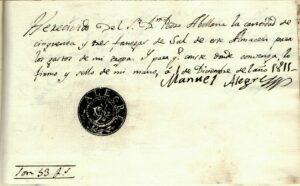 He recivido del Sr. Dn. Pedro Abellana la cantidad de
cinquenta y tres fanegas de Sal de este Almacen para
los gastos de mi y para q. conste donde convenga, lo
firmo y sello de mi mano, á 1 de Diciembre del año 1811
Manuel Alegre
ALEGRE
Son 53 fs